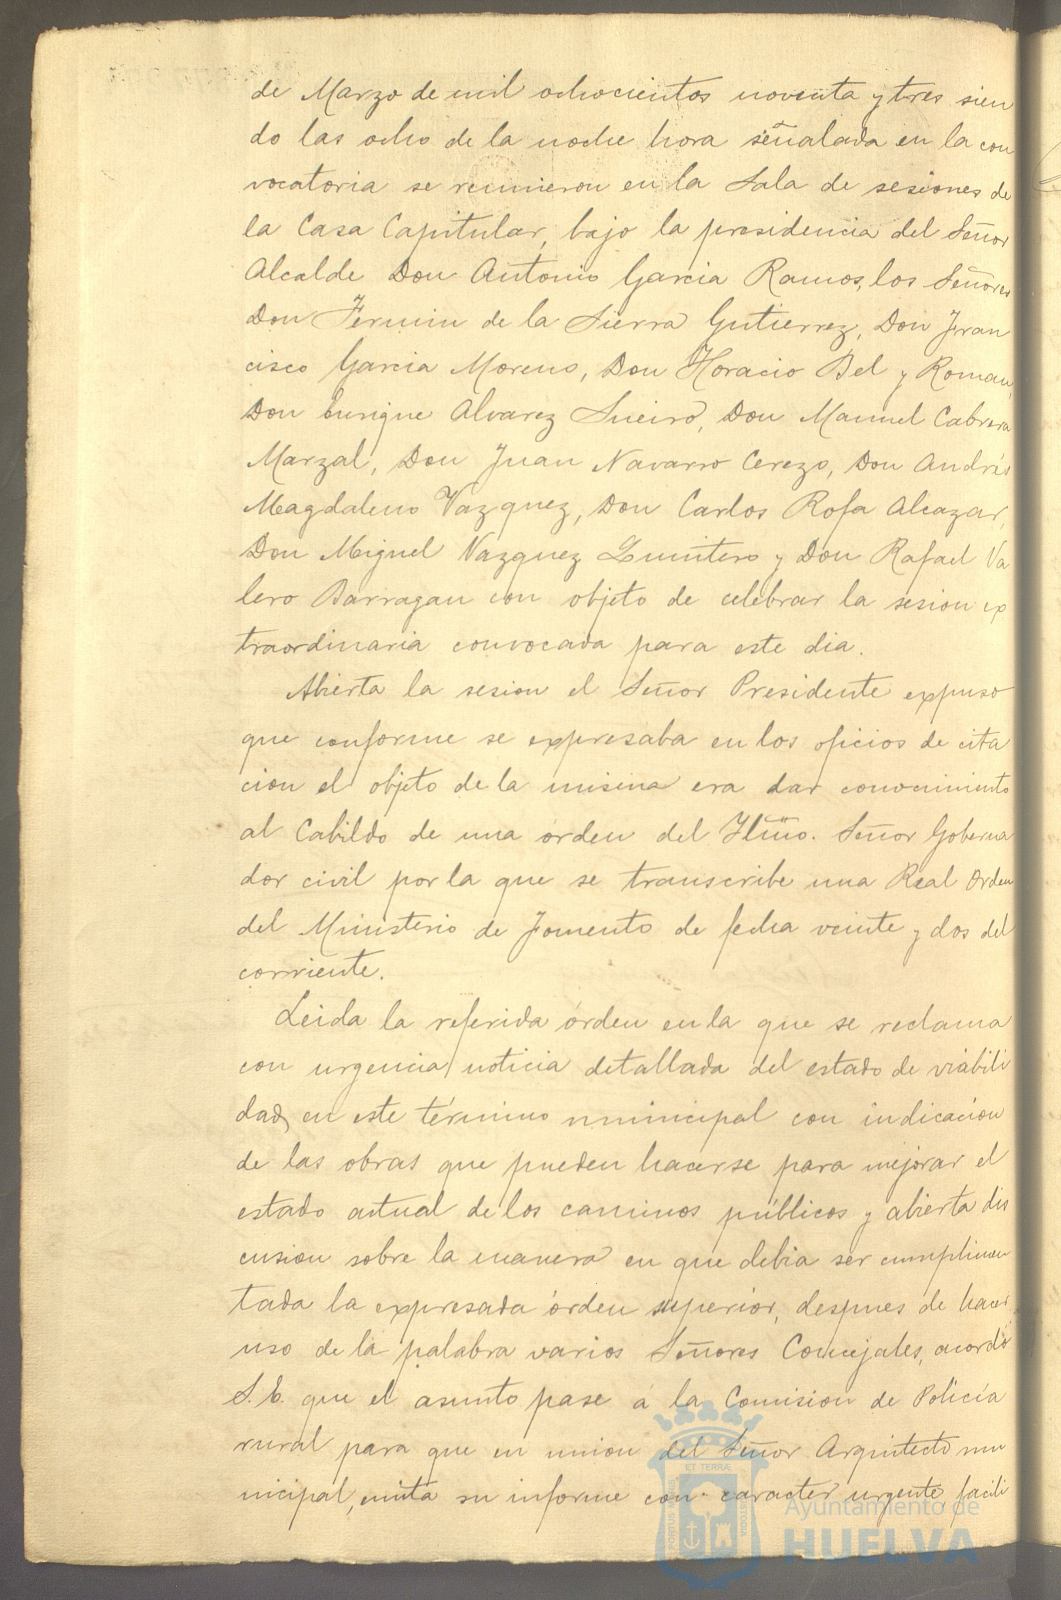 de Marzo de mil ochocientos noventa y tres sien
do las ocho de la noche hora señalada en la con
vocatoria se reunieron en la Sala de sesiones de
la Casa Capitular, bajo la presidencia del Señor
Alcalde Don Antonio Garcia Ramos, los Señores
Don Fermin de la Sierra Gutierrez, Don Fran
cisco Garcia Moreno, Don Horacio Bel y Roman,
Don Enrique Alvarez Sueiro, Don Manuel Cabrera
Marzal, Don Juan Navarro Cerezo, Don Andrés
Magdaleno Vazquez, Don Carlos Rofa Alcazar,
Don Miguel Vazquez Quintero y Don Rafael Va
lero Barragan con objeto de celebrar la sesion ex
traordinaria convocada para este dia.
Abierta la sesion el Señor Presidente expuso
que conforme se expresaba en los oficios de cita
cion el objeto de la misma era dar conocimiento
al Cabildo de una orden del Ylmo. Señor Goberna
dor civil por la que se transcribe una Real orden
del Ministerio de Fomento de fecha veinte y dos del
corriente.
Leida la referida órden en la que se reclama
con urgencia noticia detallada del estado de viabili
dad, en este término municipal con indicacion
de las obras que pueden hacerse para mejorar el
estado actual de los caminos públicos y abierta dis
cusion sobre la manera en que debia ser cumplimen
tada la expresada órden superior, despues de hacer
uso de la palabra varios Señores Concejales, acordó
S. E. que el asunto pase á la Comision de Policía
rural para que en union del Señor Arquitecto mu
nicipal, emita su informe con caracter urgente, facili
ET TERRÆ
CUSTODIA
Ayuntamiento de
HUELVA